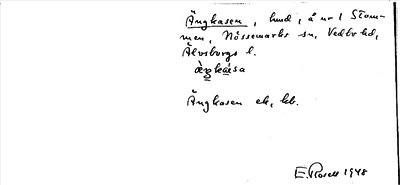 Ängkasen, hund, å nr 1 Stom-
men, Nössemarks sn, Vedbo hd,
Älvsborgs l.
Ängkasen ek, kb.
E. Rosell 1948